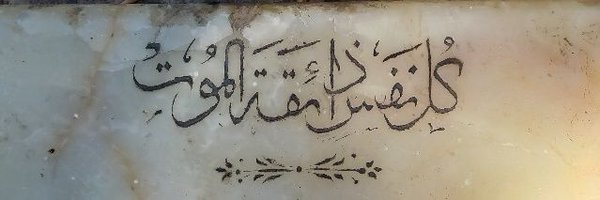 كُل نفَس ذَائقَة المُوت